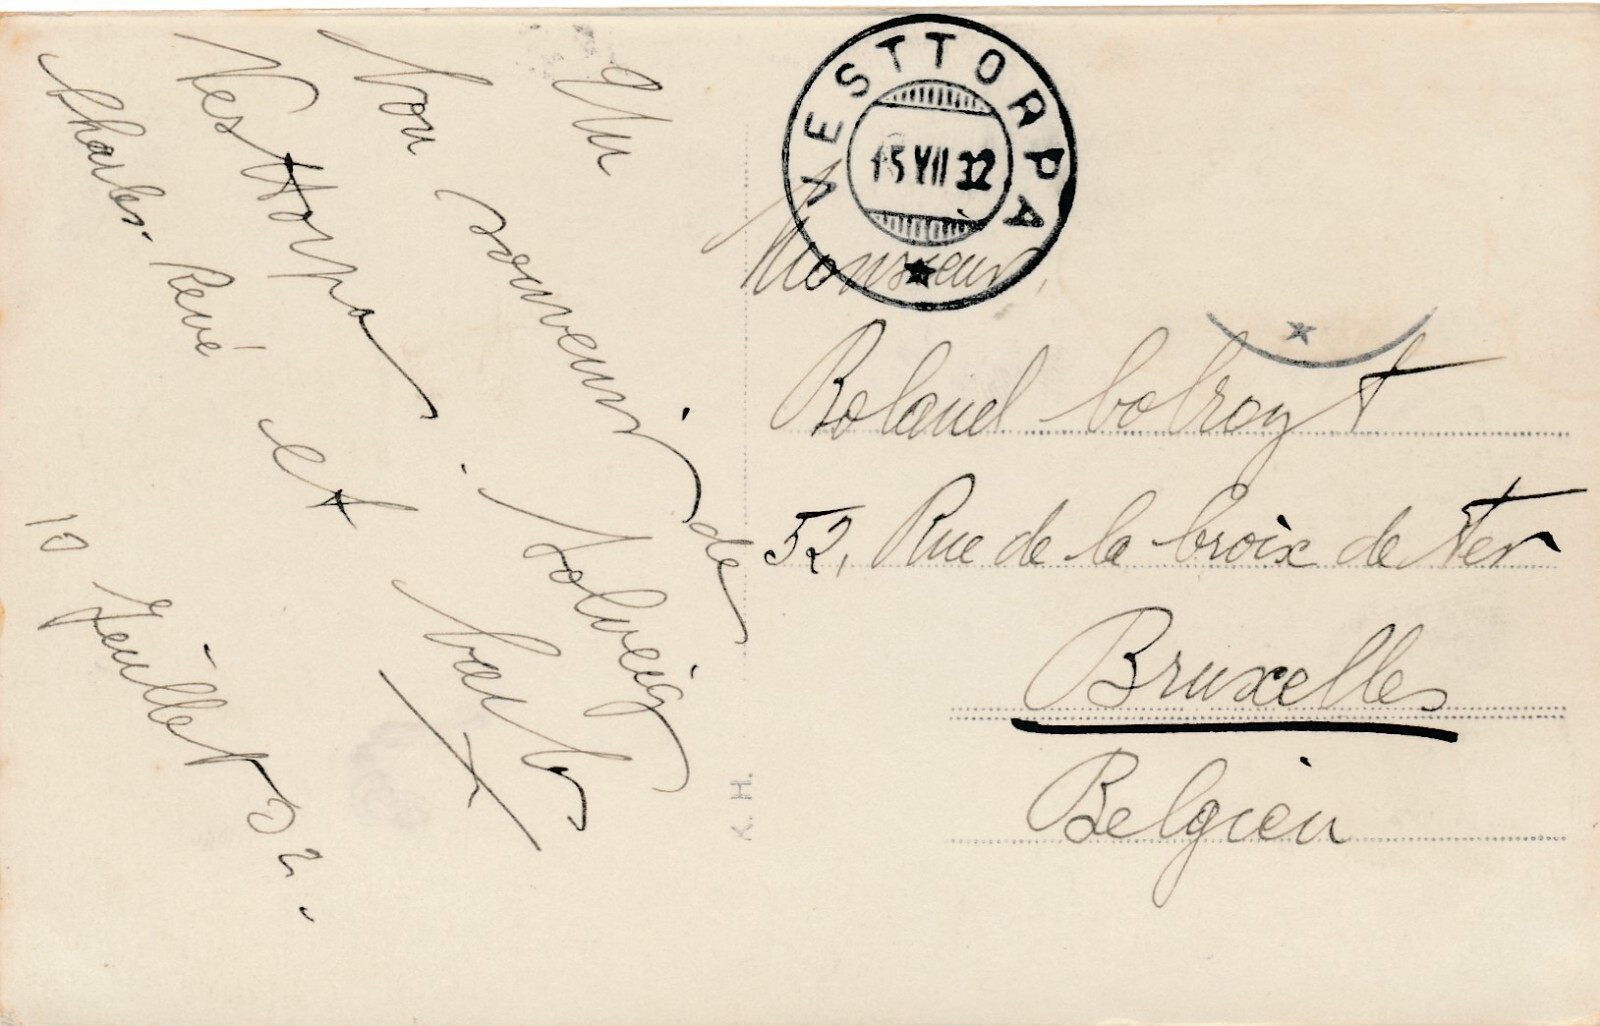 Un
bon souvenir de
Vesttorpa. Solveig
Charles-René et
10 Juillet 32.
VESTTORPA
15 VII 32
Monsieur,
Roland
52, Rue de la Croix de Fer
Bruxelles
Belgien
K. H.